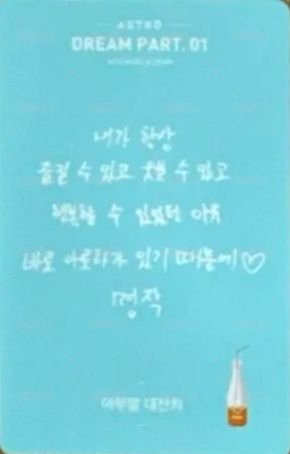 ASTRO
DREAM PART. 01
내가 항상
즐길 수 있고 웃을 수 있고
행복할 수 있었던 이유
바로 아로하가 있기 때문에♡
명작
아무말 대잔치